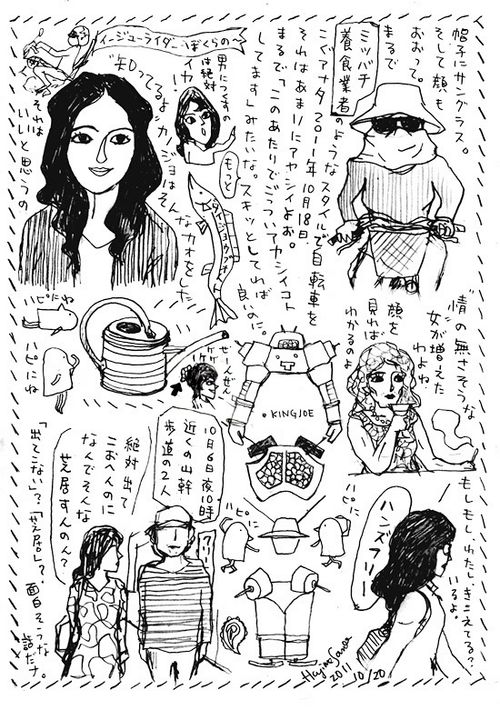 帽子にサングラス。
そして顔も
おおって。
まるで
ミツバチ
養食業者
のような
スタイルで自転車を
こぐアナタ 2011年10月18日、
それはあまりにアヤシイよお。
まるで「このあたりで
アヤシイコト
してます」みたいな。スキッとしてれば
良いのに。
イージューライダー ぼくらの
男に
は絶対
イカ
もっと
"知ってるよ カノジョは
そんなカオをした
それは
いいと思うの
ハピにね
ハピにね
KINGJOE
"情"の無さそうな
女が増えた
わよね
顔を
見れば
わかるのよ
10月6日夜10時
近くの山幹
歩道の2人
絶対出て
こおへんのに
なんでそんな
芝居すんのん？
「出てない」？「芝居」？
面白そうな
話だナ。
ハピに
ハピに
もしもしわたし、きこえてる？
いるよ。
ハンズフリー
2011
10/20